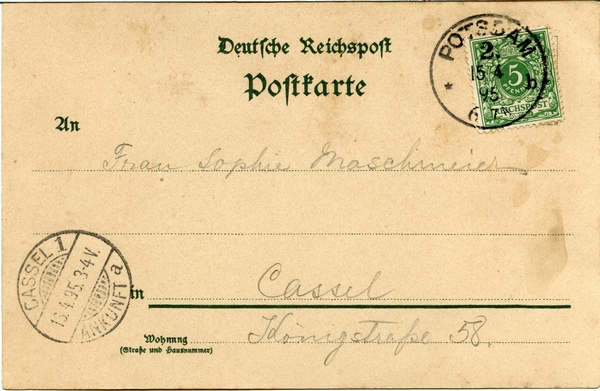 Deutsche Reichspost
Postkarte
POTSDAM
2.
15/4
95
6-7
* b
5
PFENNIG
REICHSPOST
An
Frau Sophie Maschmeier
CASSEL 1
16.4.95.3-4V.
ANKUNFT a
in Cassel
Wohnung
(Straße und Hausnummer)
Königstraße 58.